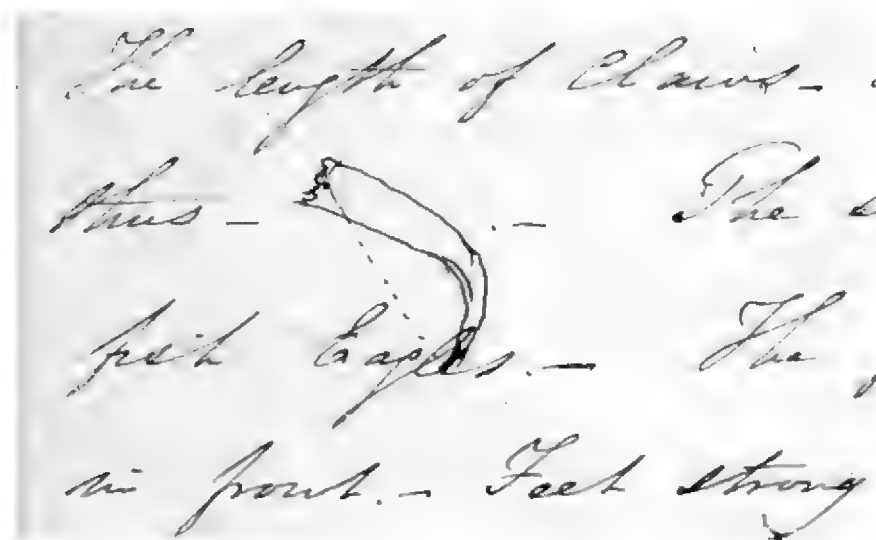 The length of Claws -
thus - . - The
fish Eagles. - The
in front. - Feet strong